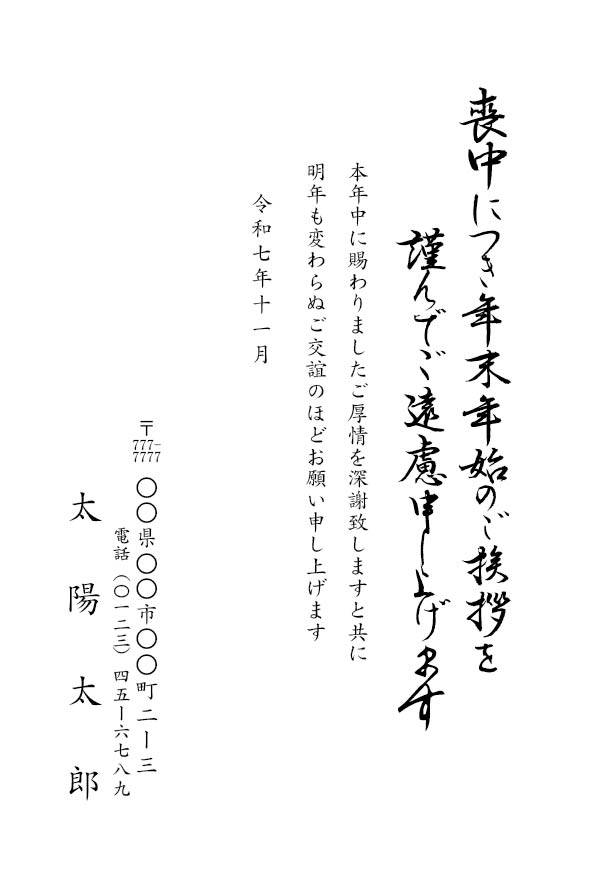 喪中につき年末年始のご挨拶を
謹んでご遠慮申し上げます
本年中に賜わりましたご厚情を深謝致しますと共に
明年も変わらぬご交誼のほどお願い申し上げます
令和七年十一月
〒777-7777
〇〇県〇〇市〇〇町二ー三
電話（〇一二三）四五ー六七八九
太陽太郎